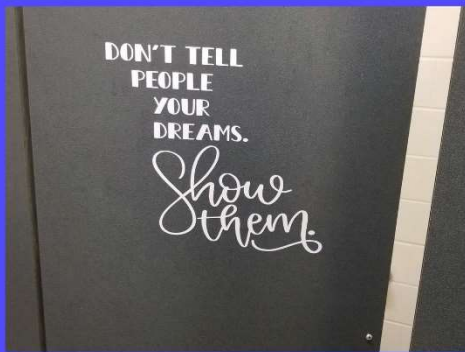 DON'T TELL
PEOPLE
YOUR
DREAMS.
Show
them.